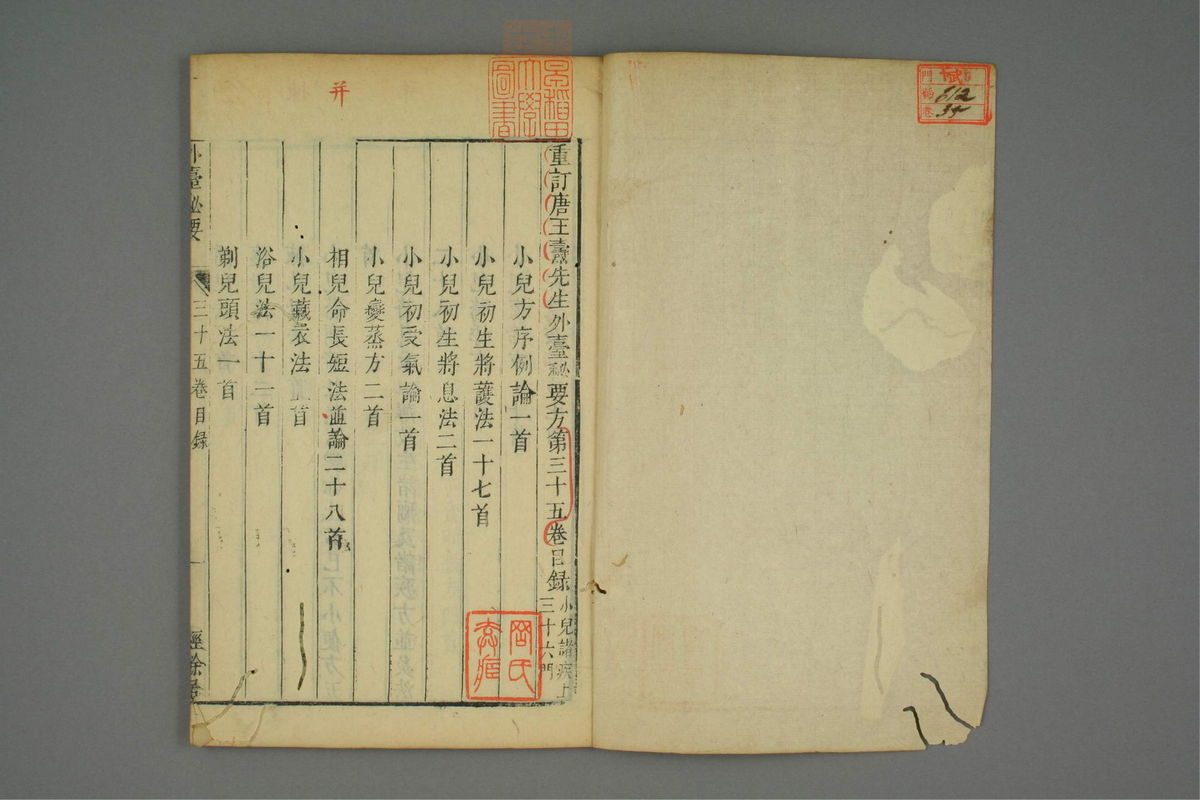 重訂唐王燾先生外臺秘要方第三十五卷目録
小兒諸疾上
三十六門
小兒方序例論一首
小兒初生將護法一十七首
小兒初生將息法二首
小兒初受氣論一首
小兒變蒸方二首
相兒命長短法並論二十八首
小兒藏衣法
浴兒法一十一首
剃兒頭法一首
外臺秘要
三十五卷目録
經餘居
并
早稻田大學圖書
612
34